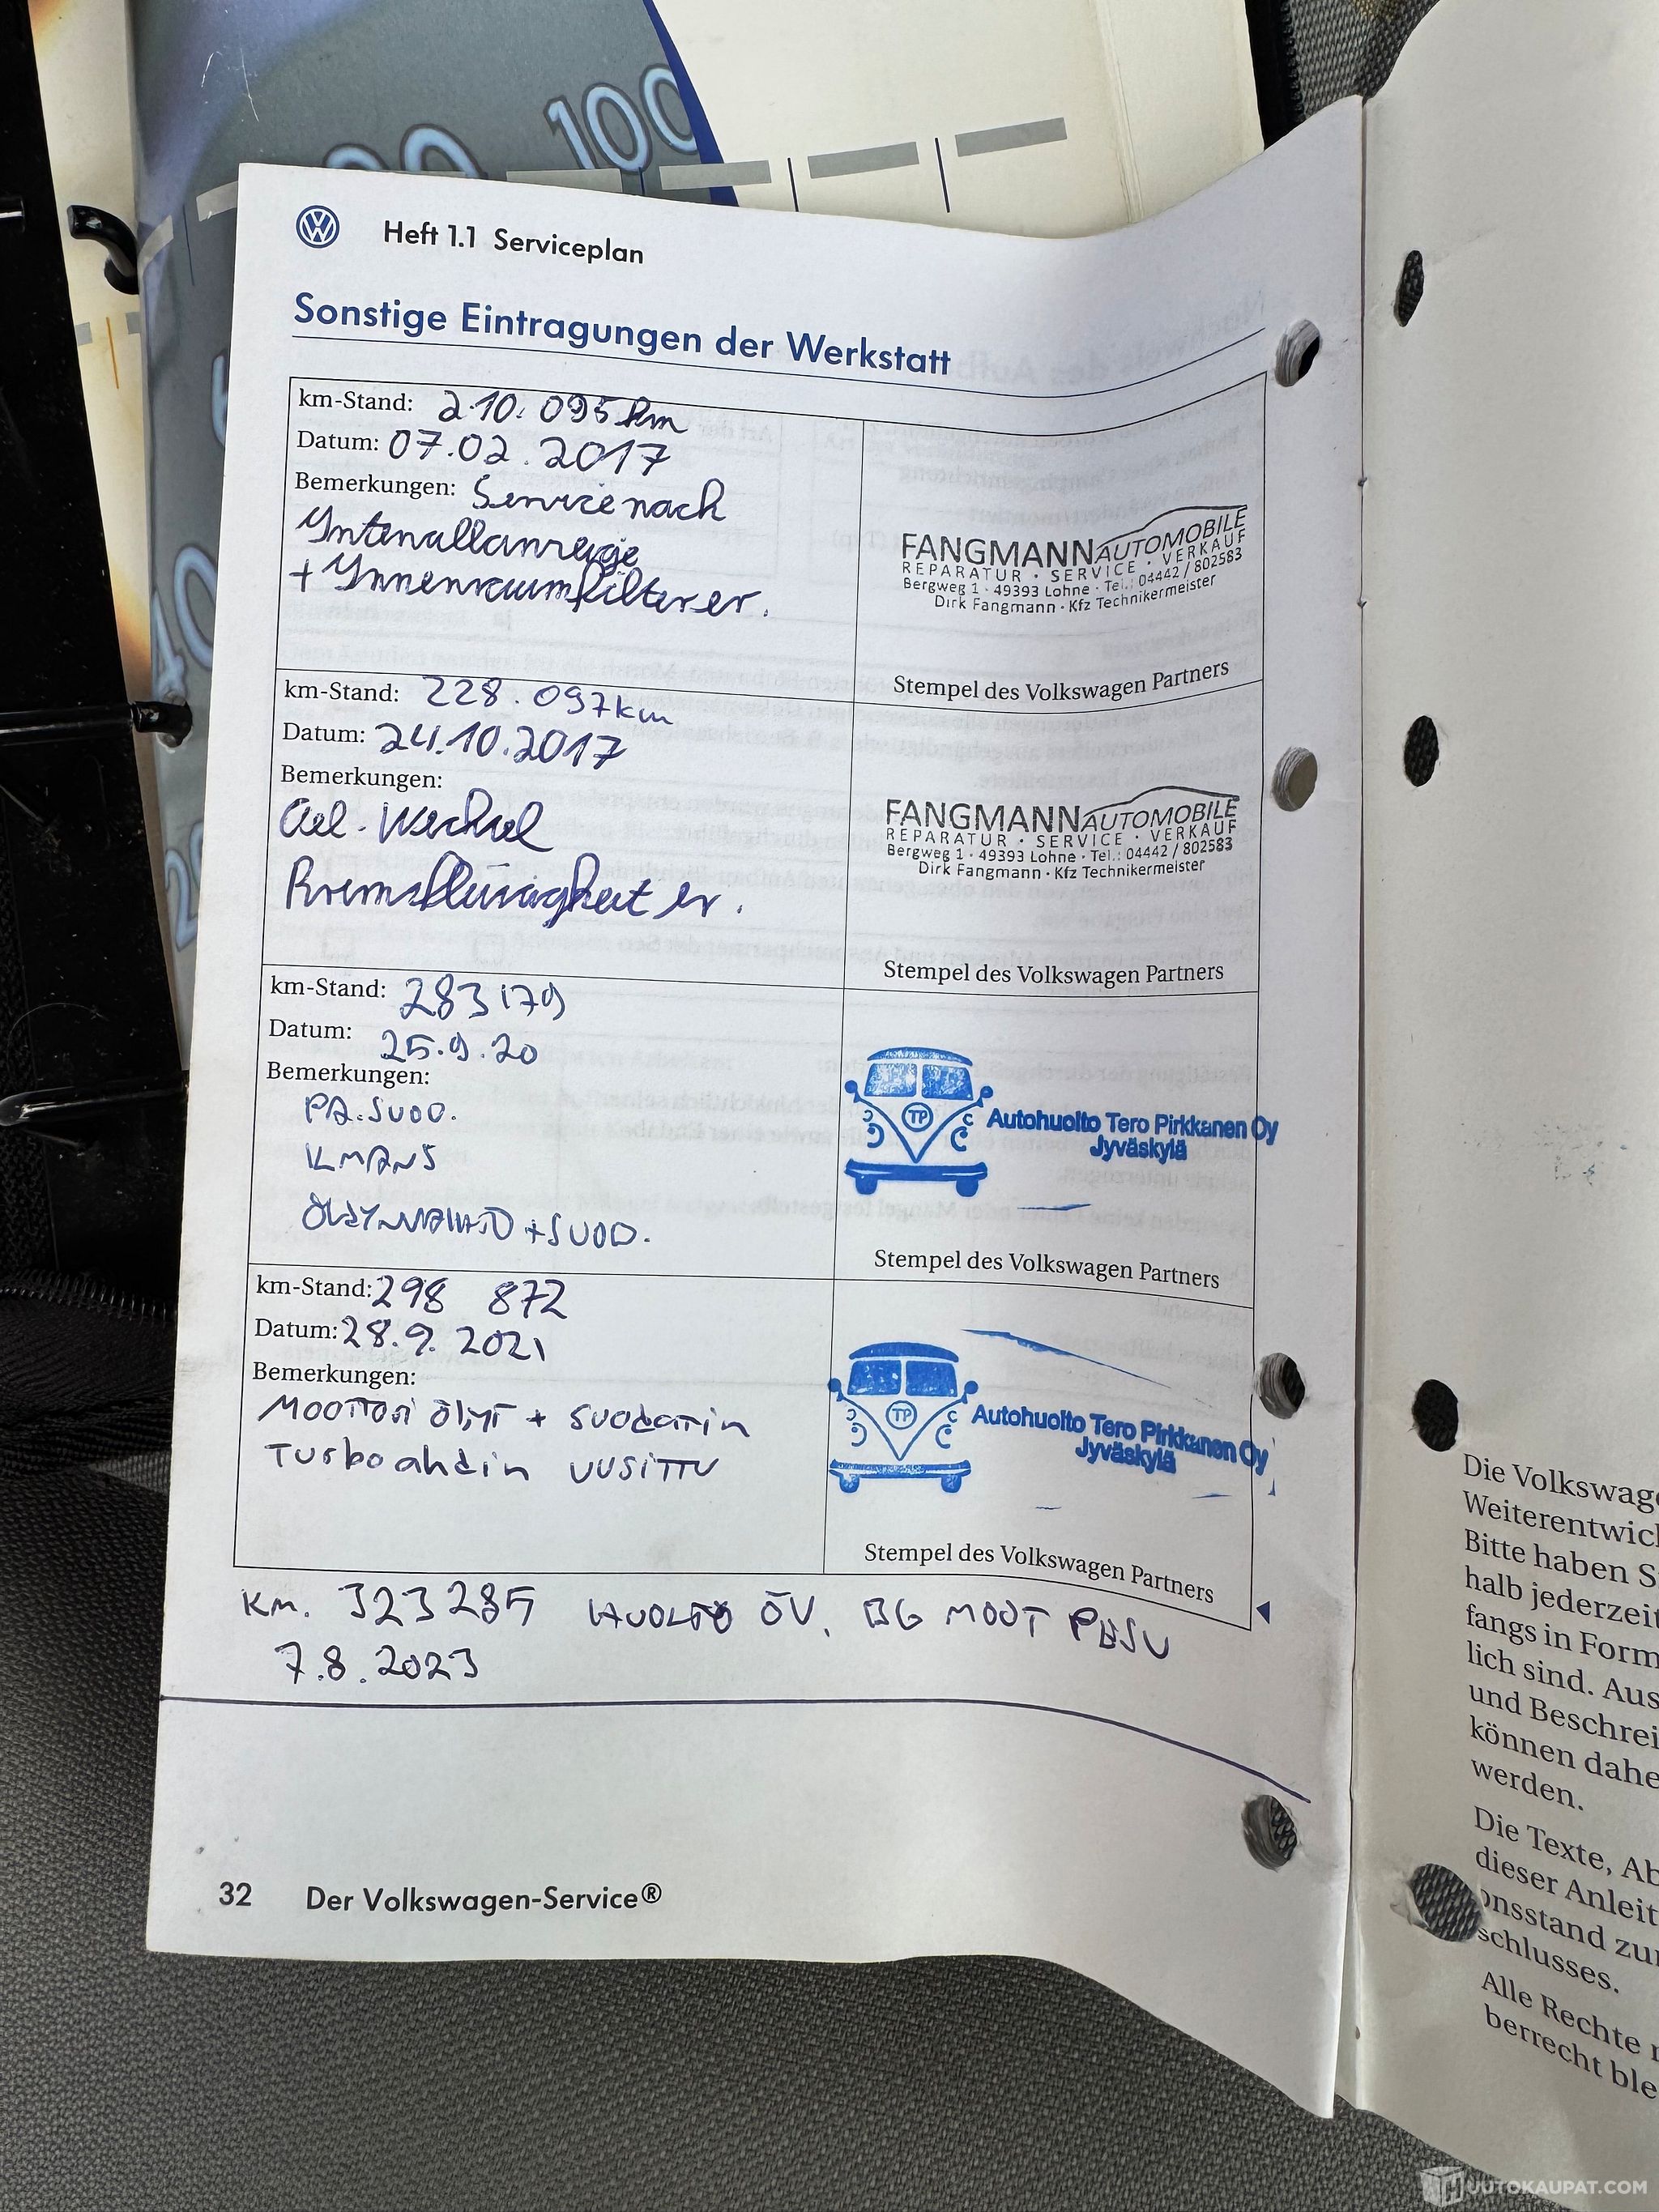 100
Heft 1.1 Serviceplan
Sonstige Eintragungen der Werkstatt
km-Stand: 210.095km
Datum: 07.02.2017
Bemerkungen: Service nach
Intervallanzeige
+ Innenraumfilter er.
FANGMANN AUTOMOBILE
REPARATUR · SERVICE · VERKAUF
Bergweg 1 · 49393 Lohne · Tel.: 04442 / 802583
Dirk Fangmann · Kfz Technikermeister
Stempel des Volkswagen Partners
km-Stand: 228.097km
Datum: 24.10.2017
Bemerkungen:
Oel-Wechsel
Bremsflüssigkeit er.
FANGMANN AUTOMOBILE
REPARATUR · SERVICE · VERKAUF
Bergweg 1 · 49393 Lohne · Tel.: 04442 / 802583
Dirk Fangmann · Kfz Technikermeister
Stempel des Volkswagen Partners
km-Stand: 283179
Datum: 25.9.20
Bemerkungen:
PA.SUOD.
ILMANS
ÖLJYNVAIHTO + SUOD.
TP
Autohuolto Tero Pirkkanen Oy
Jyväskylä
Stempel des Volkswagen Partners
km-Stand: 298 872
Datum: 28.9.2021
Bemerkungen:
MOOTTORI ÖLJYT + SUODATIN
Turboahdin UUSITTU
TP
Autohuolto Tero Pirkkanen Oy
Jyväskylä
Stempel des Volkswagen Partners
Km. 323285 HUOLTO ÖV, BG MOOT PESU
7.8.2023
32 Der Volkswagen-Service®
Die Volkswage
Weiterentwicl
Bitte haben S
halb jederzeit
fangs in Form
lich sind. Aus
und Beschrei
können dahe
werden.
Die Texte, Ab
dieser Anleit
onsstand zu
schlusses.
Alle Rechte
berrecht ble
UUTOKAUPAT.COM